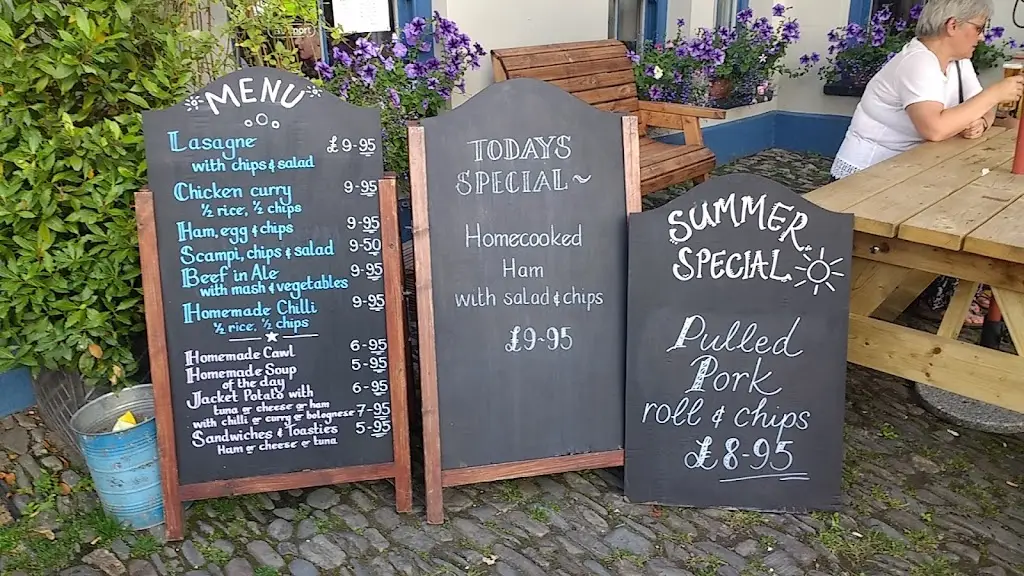 MENU
Lasagne £9-95
with chips & salad
Chicken curry 9-95
½ rice, ½ chips
Ham, egg & chips 9-95
Scampi, chips & salad 9-50
Beef in Ale 9-95
with mash & vegetables
Homemade Chilli 9-95
½ rice, ½ chips
Homemade Cawl 6-95
Homemade Soup 5-95
of the day
Jacket Potato with 6-95
tuna or cheese or ham
with chilli or curry or bolognese 7-95
Sandwiches & Toasties 5-95
Ham or cheese or tuna
TODAYS
SPECIAL~
Homecooked
Ham
with salad & chips
£9-95
SUMMER
SPECIAL
Pulled
Pork
roll & chips
£8-95